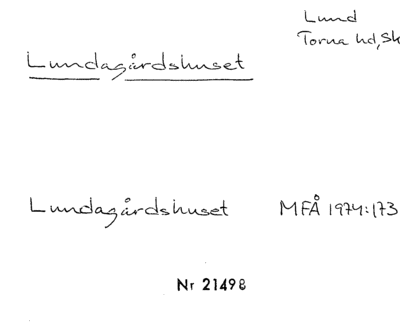 Lund
Torna hd, Sk
Lundagårdshuset
Lundagårdshuset MFÅ 1974:173
Nr 21498